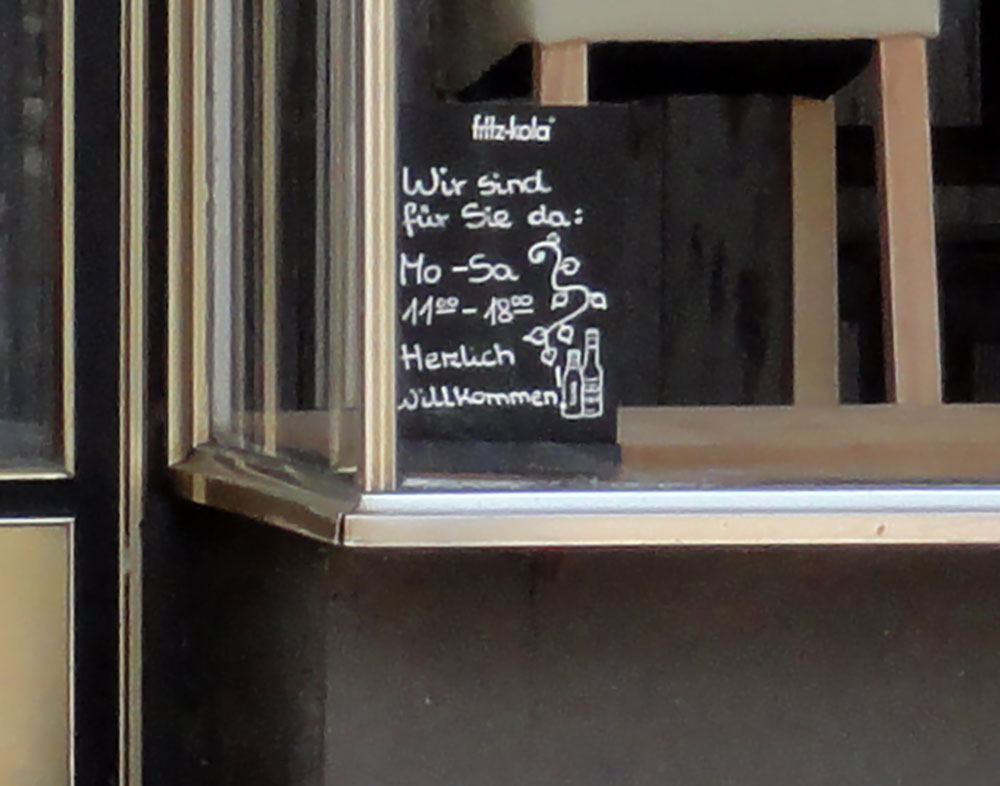 fritz-kola
Wir sind
für Sie da:
Mo - Sa
11⁰⁰ - 18⁰⁰
Herzlich
willkommen!